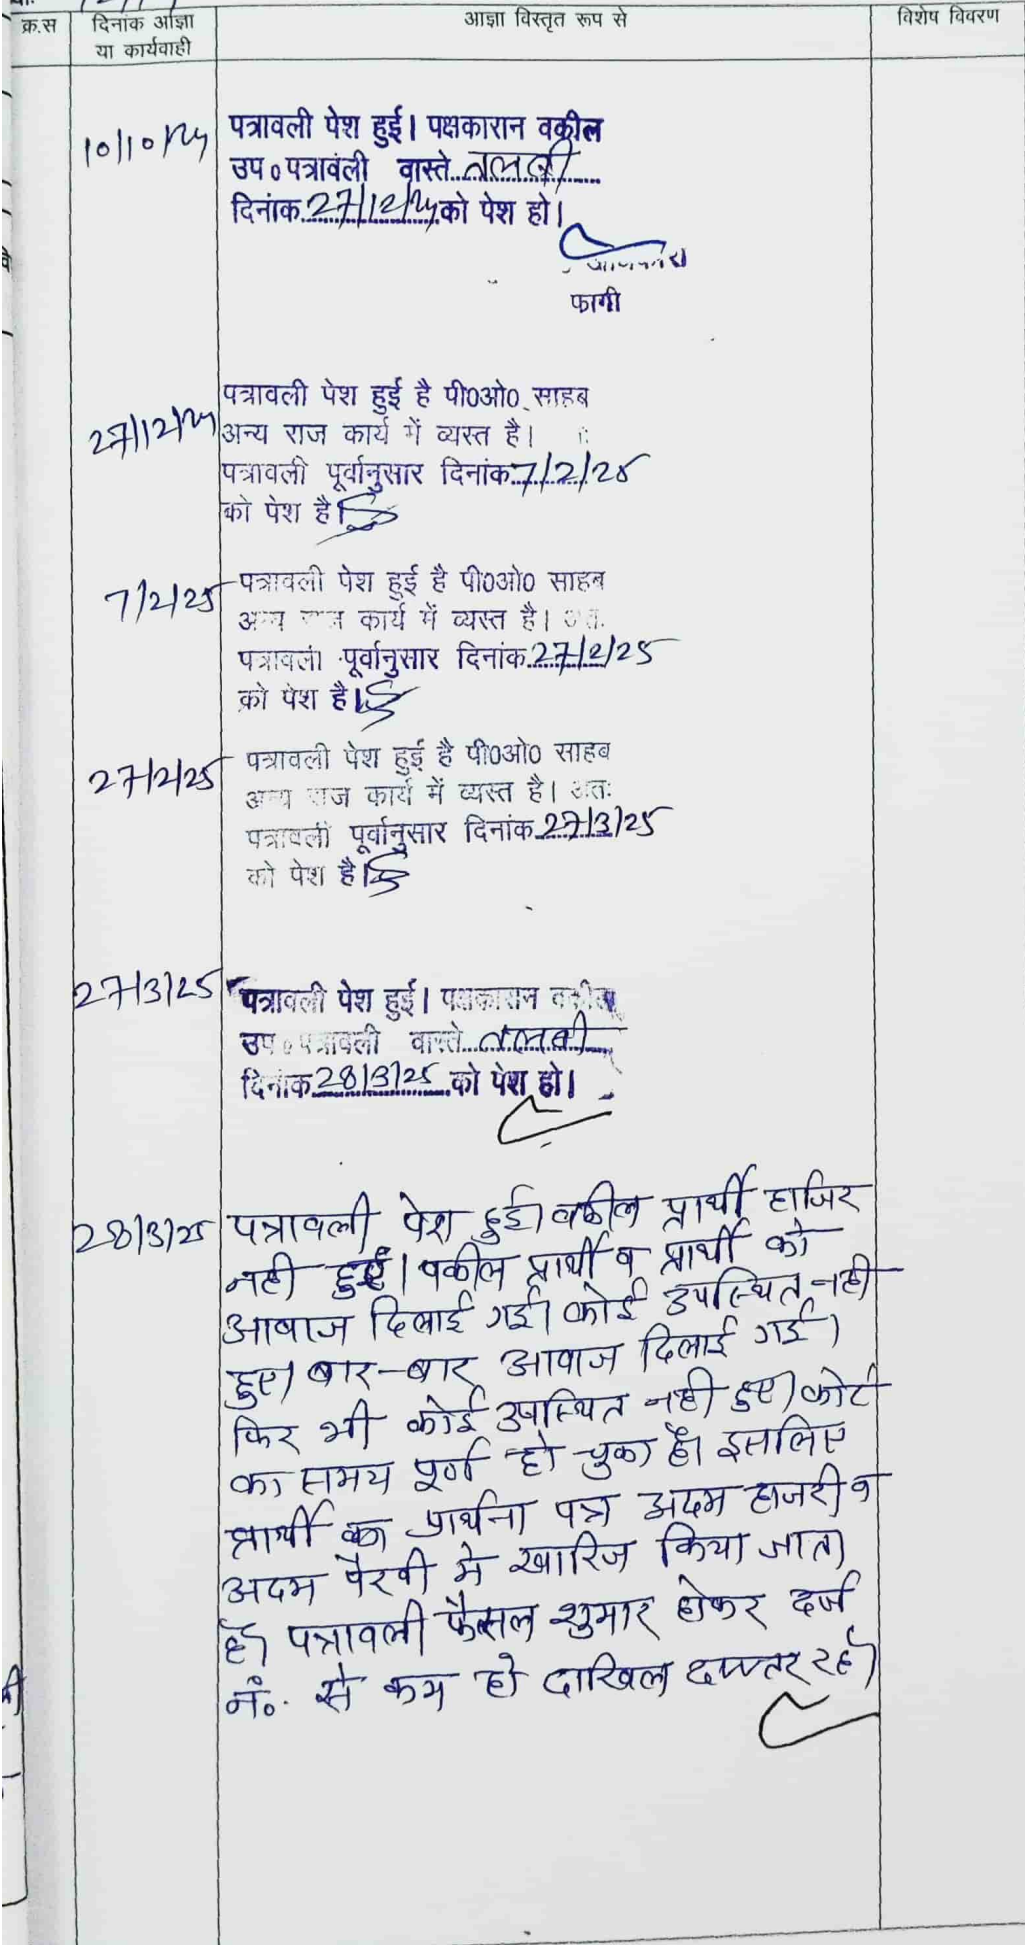 क्र.स
दिनांक आज्ञा
या कार्यवाही
आज्ञा विस्तृत रूप से
विशेष विवरण
10/10/24
पत्रावली पेश हुई। पक्षकारान वकील
उप०पत्रावली वास्ते तलबी
दिनांक 27/12/24 को पेश हो।
फागी
27/12/24
पत्रावली पेश हुई है पी0ओ0 साहब
अन्य राज कार्य में व्यस्त है।
पत्रावली पूर्वानुसार दिनांक 7/2/25
को पेश है।
7/2/25
पत्रावली पेश हुई है पी0ओ0 साहब
अन्य राज कार्य में व्यस्त है। अतः
पत्रावली पूर्वानुसार दिनांक 27/2/25
को पेश है।
27/2/25
पत्रावली पेश हुई है पी0ओ0 साहब
अन्य राज कार्य में व्यस्त है। अतः
पत्रावली पूर्वानुसार दिनांक 27/3/25
को पेश है।
27/3/25
पत्रावली पेश हुई। पक्षकारान वकील
उप०पत्रावली वास्ते तलबी
दिनांक 28/3/25 को पेश हो।
28/3/25
पत्रावली पेश हुई। वकील प्रार्थी हाजिर
नही हुए। वकील प्रार्थी व प्रार्थी को
आवाज दिलाई गई। कोई उपस्थित नही
हुए। बार-बार आवाज दिलाई गई।
फिर भी कोई उपस्थित नही हुए। कोर्ट
का समय पूर्ण हो चुका है। इसलिए
प्रार्थी का प्रार्थना पत्र अदम हाजरी व
अदम पैरवी मे खारिज किया जाता
है। पत्रावली फैसल शुमार होकर दर्ज
नं. से कम हो दाखिल दफ्तर रहे।